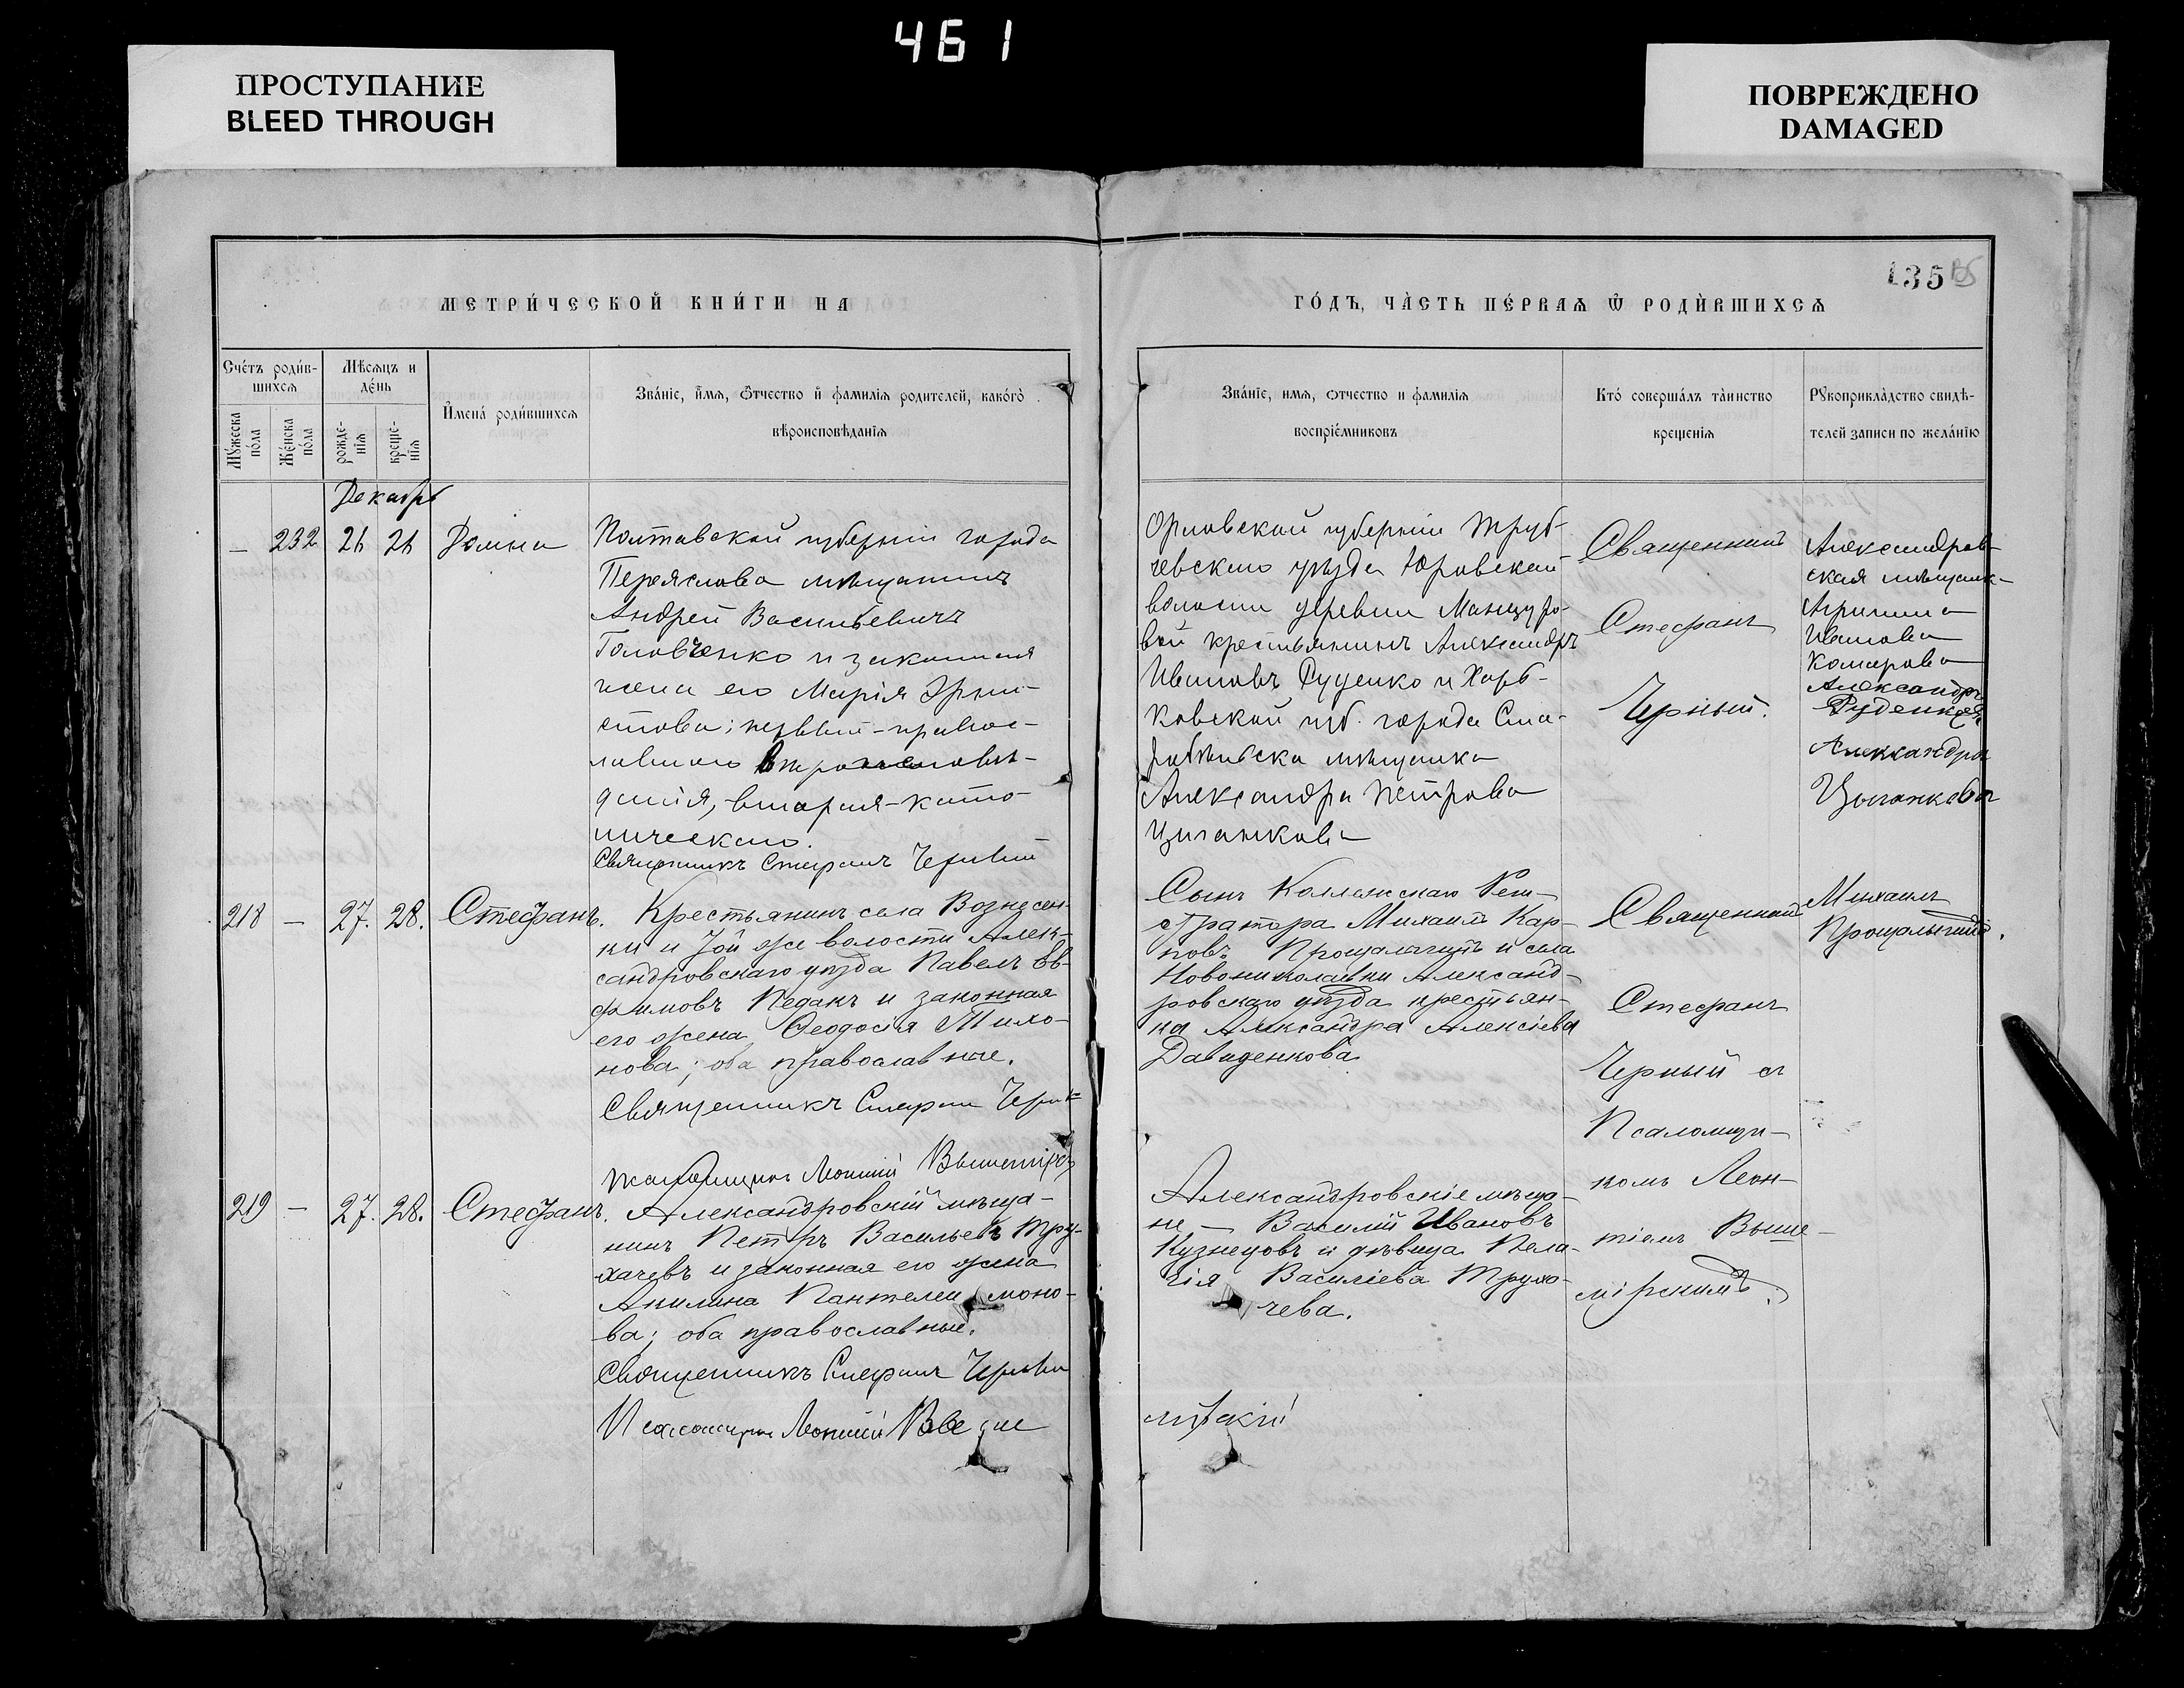 461
ПРОСТУПАНИЕ
BLEED THROUGH
ПОВРЕЖДЕНО
DAMAGED
135
МЕТРИ́ЧЕСКОЙ КНИ́ГИ НА
ГО́ДЪ, ЧА̀СТЬ ПЕ́РВАѦ Ѿ РОДЍВШИХСѦ
Сче́тъ роди́в-
шихсѧ
Мѣ́сѧцъ и
де́нь
И҆мена́ роди́вшихсѧ
Зва́нїе, и҆́мѧ, ѻ҆́тчество и҆ фамилїѧ родителей, како́гѡ
вѣроисповѣ́данїѧ
Мꙋ́жеска
по́ла
Же́нска
по́ла
рожде-
нїѧ
креще-
нїѧ
Зва́нїе, имѧ, ѻтчество и фамилїѧ
воспрїе́мниковъ
Кто́ соверша́лъ та̀инство
крещенїѧ
Рꙋкоприкла̀дство свидѣ-
телей записи по жела́нїю
Декабрь
— 232 26 26 Домна
Полтавской губерніи города
Переяслова мѣщанинъ
Андрей Васильевичъ
Головченко и законная
жена его Марія Эрне-
стова; первый - правос-
лавнаго вѣроисповѣ-
данія, вторая - като-
лическаго.
Священникъ Стефанъ Черный
Орловской губерніи Труб-
чевскаго уѣзда Юровской
волости деревни Манцуро-
вой крестьянинъ Александръ
Ивановъ Руденко и Харь-
ковской губ. города Ста-
робѣльска мѣщанка
Александра Петрова
Цыганкова
Священникъ
Стефанъ
Черный.
Александров-
ская мѣщанк-
Агрипина
Иванова
Комарова
Александръ
Руденко
Александра
Цыганкова
218 — 27. 28. Стефанъ.
Крестьянинъ села Вознесен-
ки и той же волости Алек-
сандровскаго уѣзда Павелъ Ев-
фимовъ Педанъ и законная
его жена Ѳеодосія Тихо-
нова; оба православные.
Священникъ Стефанъ Черный
Псаломщикъ Леонтій Вышемірскій
Сынъ Коллежскаго Реги-
стратора Михаилъ Кар-
повъ Прощалыгинъ и села
Новониколаевки Александ-
ровскаго уѣзда крестьян-
ка Александра Алексіева
Давиденкова.
Священникъ
Стефанъ
Черный съ
Псаломщи-
комъ Леон-
тіемъ Выше-
мірскимъ.
Михаилъ
Прощалыгинъ.
219 — 27. 28. Стефанъ.
Александровскій мѣща-
нинъ Петръ Васильевъ Тру-
хачевъ и законная его жена
Акилина Пантелеимоно-
ва; оба православные.
Священникъ Стефанъ Черный
Псаломщикъ Леонтій Выше
мірскій
Александровскіе мѣща-
не — Василій Ивановъ
Кузнецовъ и дѣвица Пела-
гія Василіева Труха-
чева.